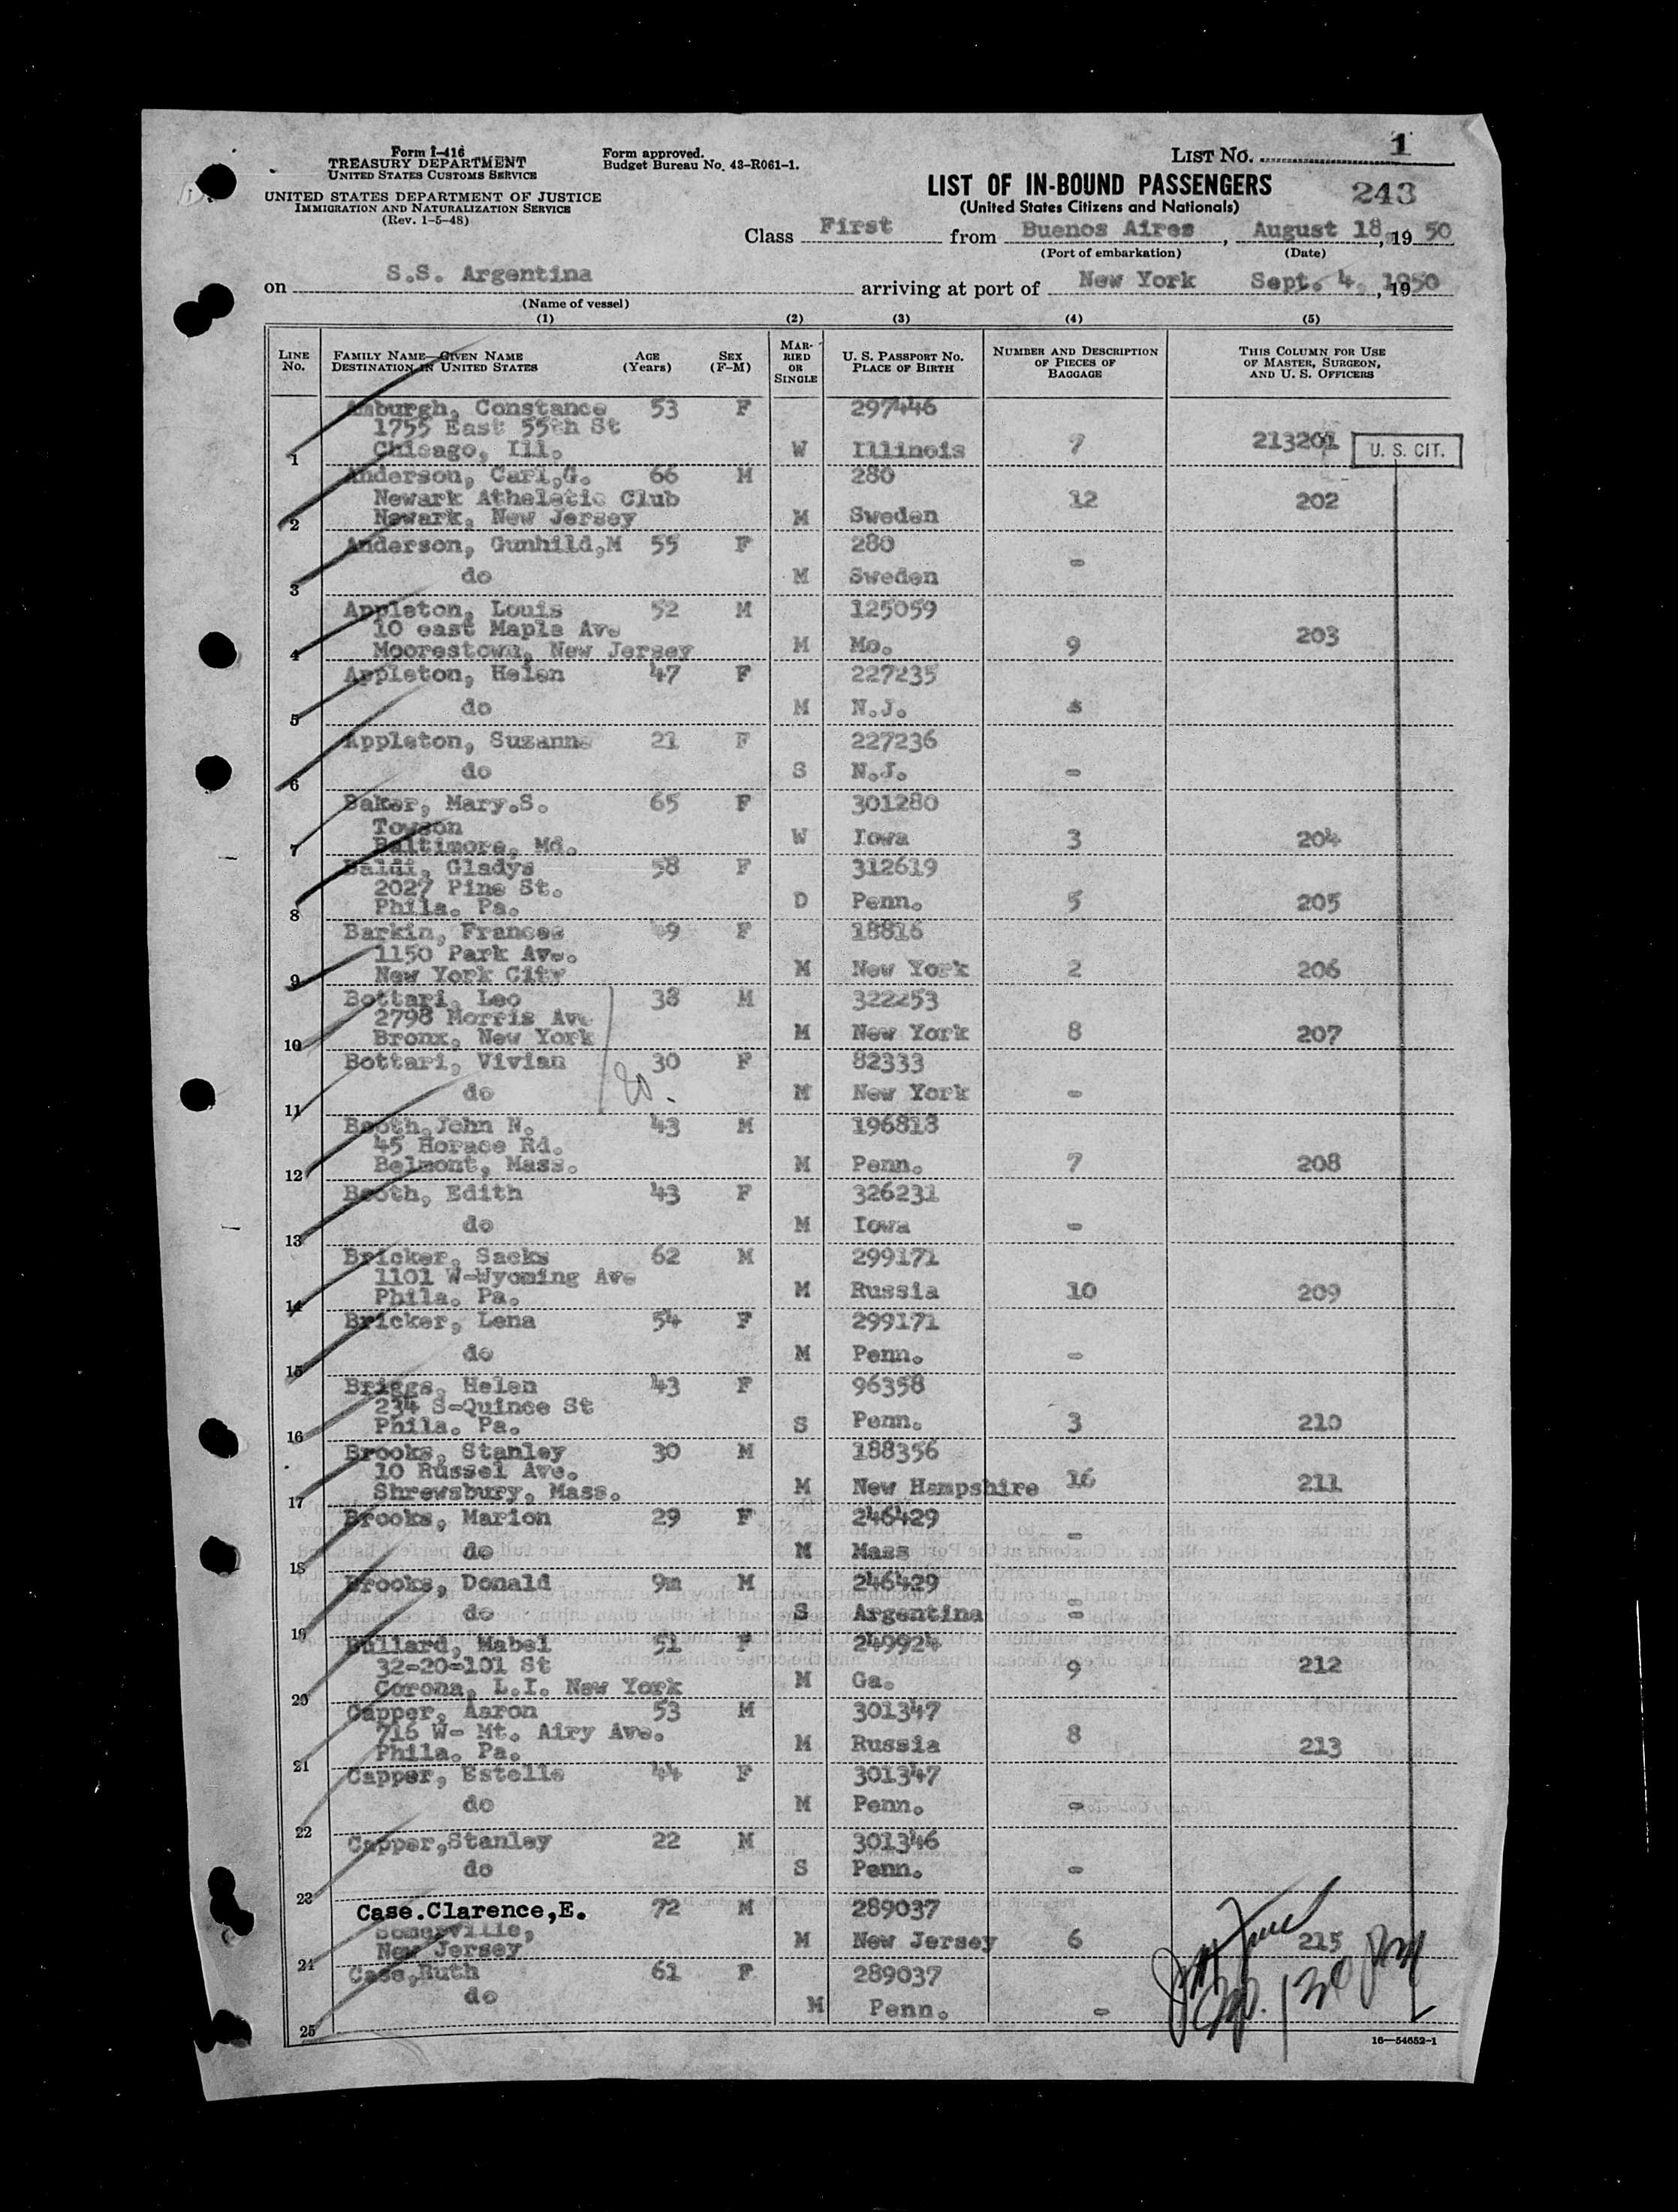 Form I-416
TREASURY DEPARTMENT
UNITED STATES CUSTOMS SERVICE
UNITED STATES DEPARTMENT OF JUSTICE
IMMIGRATION AND NATURALIZATION SERVICE
(Rev. 1-5-48)
Form approved.
Budget Bureau No. 43-R061-1.
LIST NO. 1
LIST OF IN-BOUND PASSENGERS
(United States Citizens and Nationals)
243
Class First from Buenos Aires, August 18, 19 50
(Port of embarkation) (Date)
on S.S. Argentina arriving at port of New York Sept. 4, 1950
(Name of vessel)
(1) (2) (3) (4) (5)
LINE NO. FAMILY NAME—GIVEN NAME DESTINATION IN UNITED STATES AGE (Years) SEX (F-M) MARRIED OR SINGLE U. S. PASSPORT NO. PLACE OF BIRTH NUMBER AND DESCRIPTION OF PIECES OF BAGGAGE THIS COLUMN FOR USE OF MASTER, SURGEON, AND U. S. OFFICERS
Amburgh, Constance 53 F 297446
1755 East 55th St
1 Chicago, Ill. W Illinois 7 213201 U. S. CIT.
Anderson, Carl,G. 66 M 280
Newark Atheletic Club 12 202
2 Newark, New Jersey M Sweden
Anderson, Gunhild,M 55 F 280
3 do M Sweden -
Appleton, Louis 52 M 125059
10 east Maple Ave 203
4 Moorestown, New Jersey M Mo. 9
Appleton, Helen 47 F 227235
5 do M N.J.
Appleton, Suzanne 21 F 227236
6 do S N.J. -
Baker, Mary.S. 65 F 301280
Towson
7 Baltimore, Md. W Iowa 3 204
Baldi, Gladys 58 F 312619
2027 Pine St.
8 Phila. Pa. D Penn. 5 205
Barkin, Frances 49 F 18816
1150 Park Ave.
9 New York City M New York 2 206
Bottari, Leo 38 M 322253
2798 Morris Ave
10 Bronx, New York M New York 8 207
Bottari, Vivian 30 F 82333
11 do M New York -
Booth,John N. 43 M 196818
45 Horace Rd.
12 Belmont, Mass. M Penn. 7 208
Booth, Edith 43 F 326231
13 do M Iowa -
Bricker, Sacks 62 M 299171
1101 W-Wyoming Ave
14 Phila. Pa. M Russia 10 209
Bricker, Lena 54 F 299171
15 do M Penn. -
Briggs, Helen 43 F 96358
234 S-Quince St
16 Phila. Pa. S Penn. 3 210
Brooks, Stanley 30 M 188356
10 Russel Ave.
17 Shrewsbury, Mass. M New Hampshire 16 211
Brooks, Marion 29 F 246429
18 do M Mass -
Brooks, Donald 9m M 246429
19 do S Argentina -
Bullard, Mabel 51 F 249924
32-20-101 St
20 Corona, L.I. New York M Ga. 9 212
Capper, Aaron 53 M 301347
716 W- Mt. Airy Ave.
21 Phila. Pa. M Russia 8 213
Capper, Estelle 44 F 301347
22 do M Penn. -
Capper,Stanley 22 M 301346
23 do S Penn. -
Case.Clarence,E. 72 M 289037
Somerville,
24 New Jersey M New Jersey 6 215
Case,Ruth 61 F 289037
25 do M Penn. -
16—54652-1